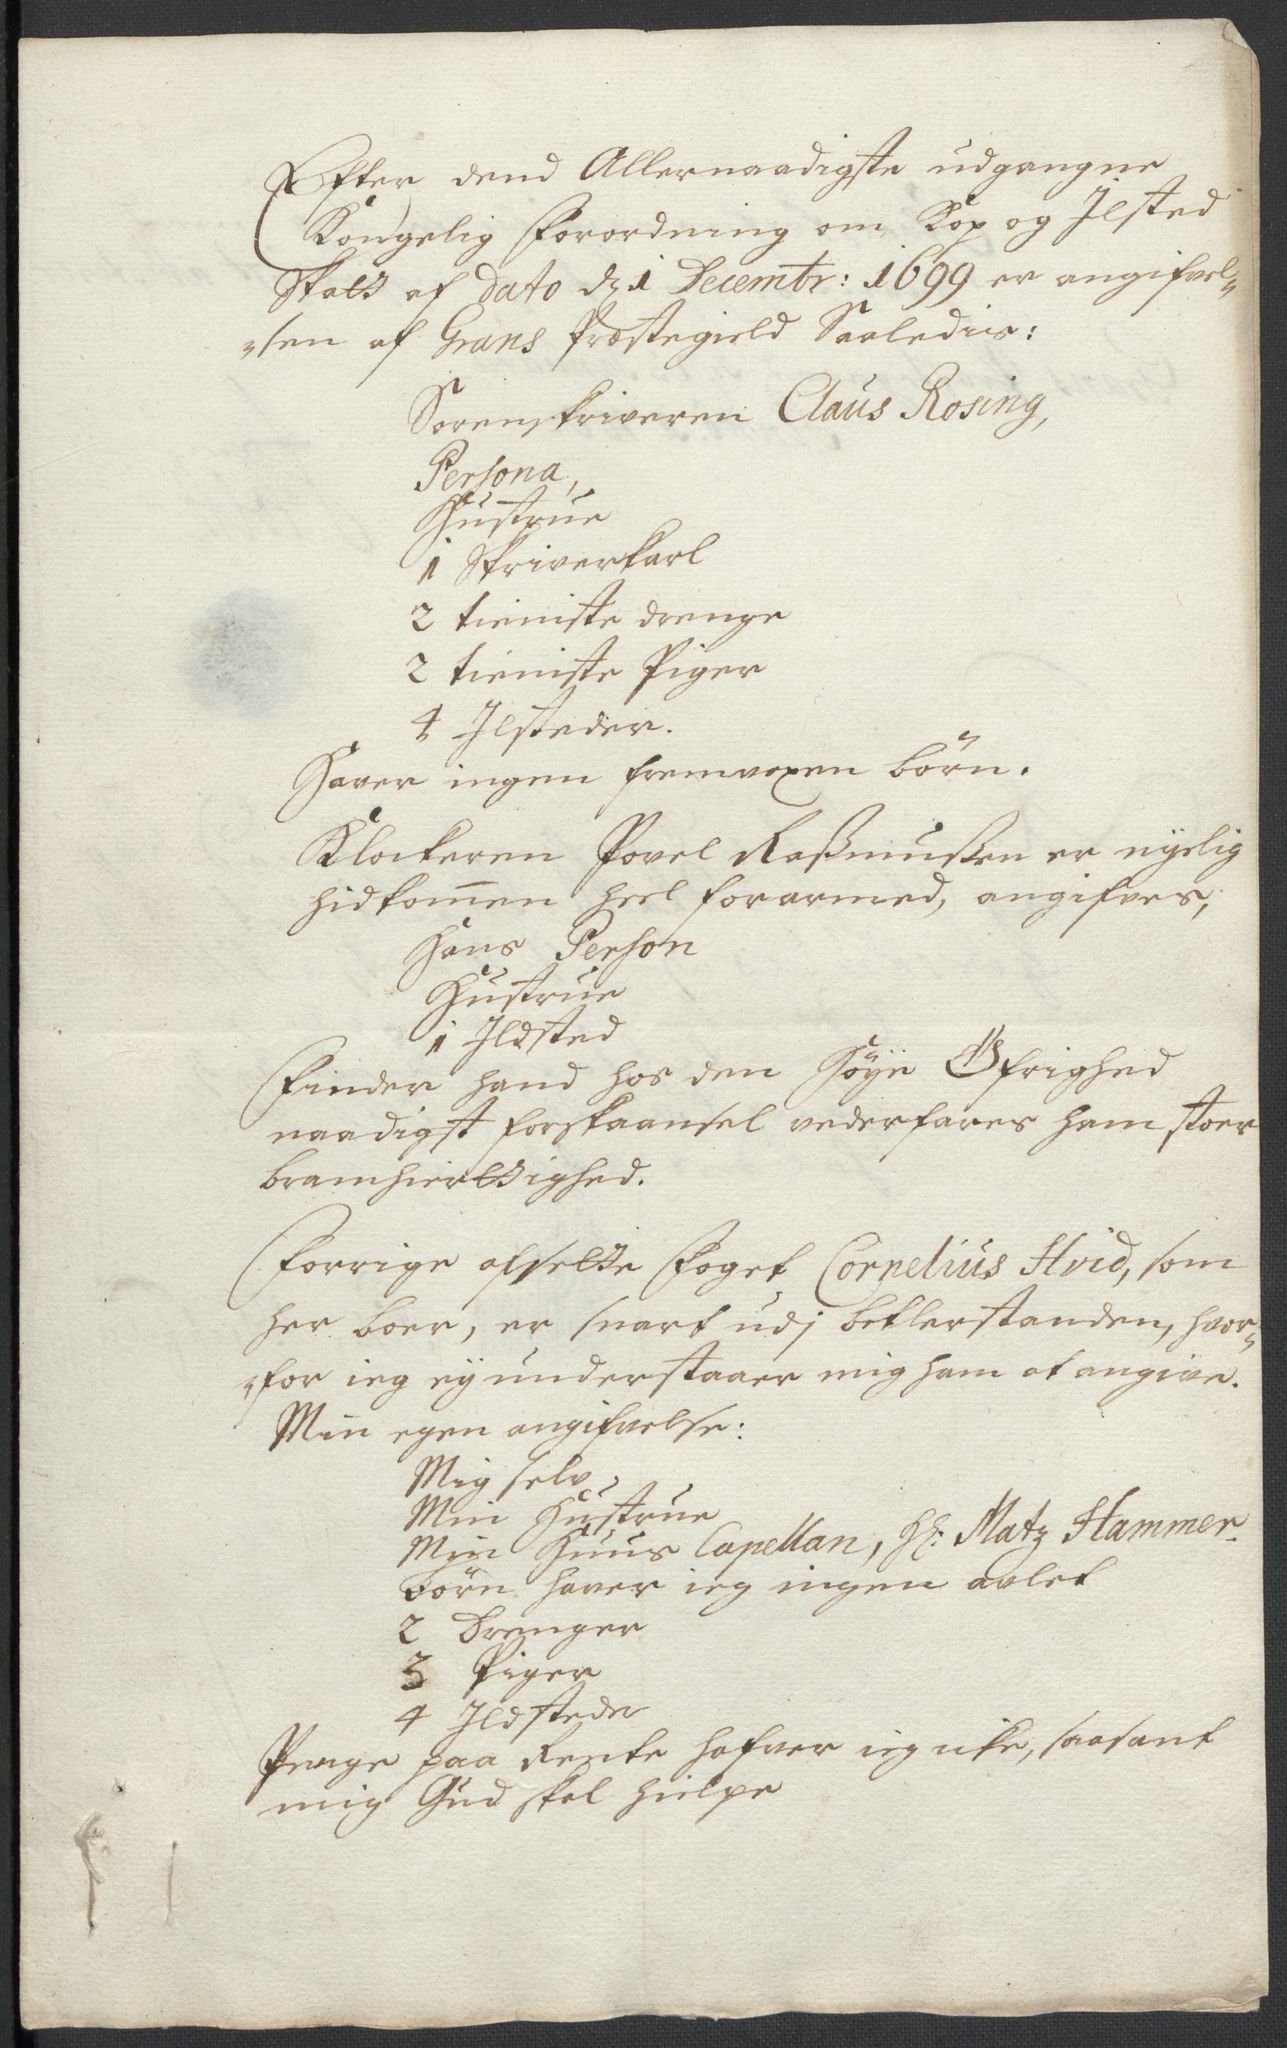 Efter dend Allernaadigste udgangne
Kongelig Forordning om Kop og Ilsted
Skatt af Dato d. 1 Decembr: 1699 er angifvel-
sen af Grans Præstegield Saaledis:
Sorenskriveren Claus Rosing,
Persona,
Hustrue
1 Skriverkarl
2 tieniste drenge
2 tieniste Piger
4 Ilsteder.
Haver ingen fremvoxen börn.
Klockeren Povel Rasmussen er nyelig
hidkommen heel forarmed, angifves,
Hans Person
Hustrue
1 Ildsted
Finder hand hos den Höye Öfrighed
naadigst forskaansel vederfares ham stoer
bramhierttighed.
Forrige afsette Foget Cornelius Hvid, som
her boer, er snart udj betlerstanden, hvor-
for ieg ey understaaer mig ham at angive.
Min egen angifvelse:
Mig selv,
Min Hustrue
Min Huus Capellan, Hr: Matz Hammer.
börn haver ieg ingen avlet
2 Drenger
3 Piger
4 Ildsteder
Penge paa Rente hafver ieg icke, saasant
mig Gud skal hielpe